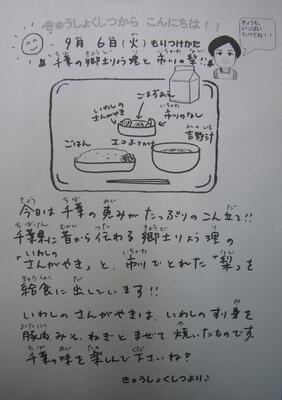 きゅうしょくしつから こんにちは！！
きょうも、
いっぱい
たべてね！！
9月 6日(火)もりつけかた
千葉の郷土りょう理と市川の梨!!
ごまあえ
いわしの
さんがやき
市川のなし
ごはん
吉野汁
今日は千葉の恵みがたっぷりのこん立て!!
千葉県に昔から伝わる郷土りょう理の
「いわしの
さんがやき」と、市川でとれた「梨」を
給食に出しています!!
いわしのさんがやきは、いわしのすり身を
豚肉、みそ、ねぎとまぜて焼いたものです。
千葉の味を楽しんで下さいね?
きゅうしょくしつより♪